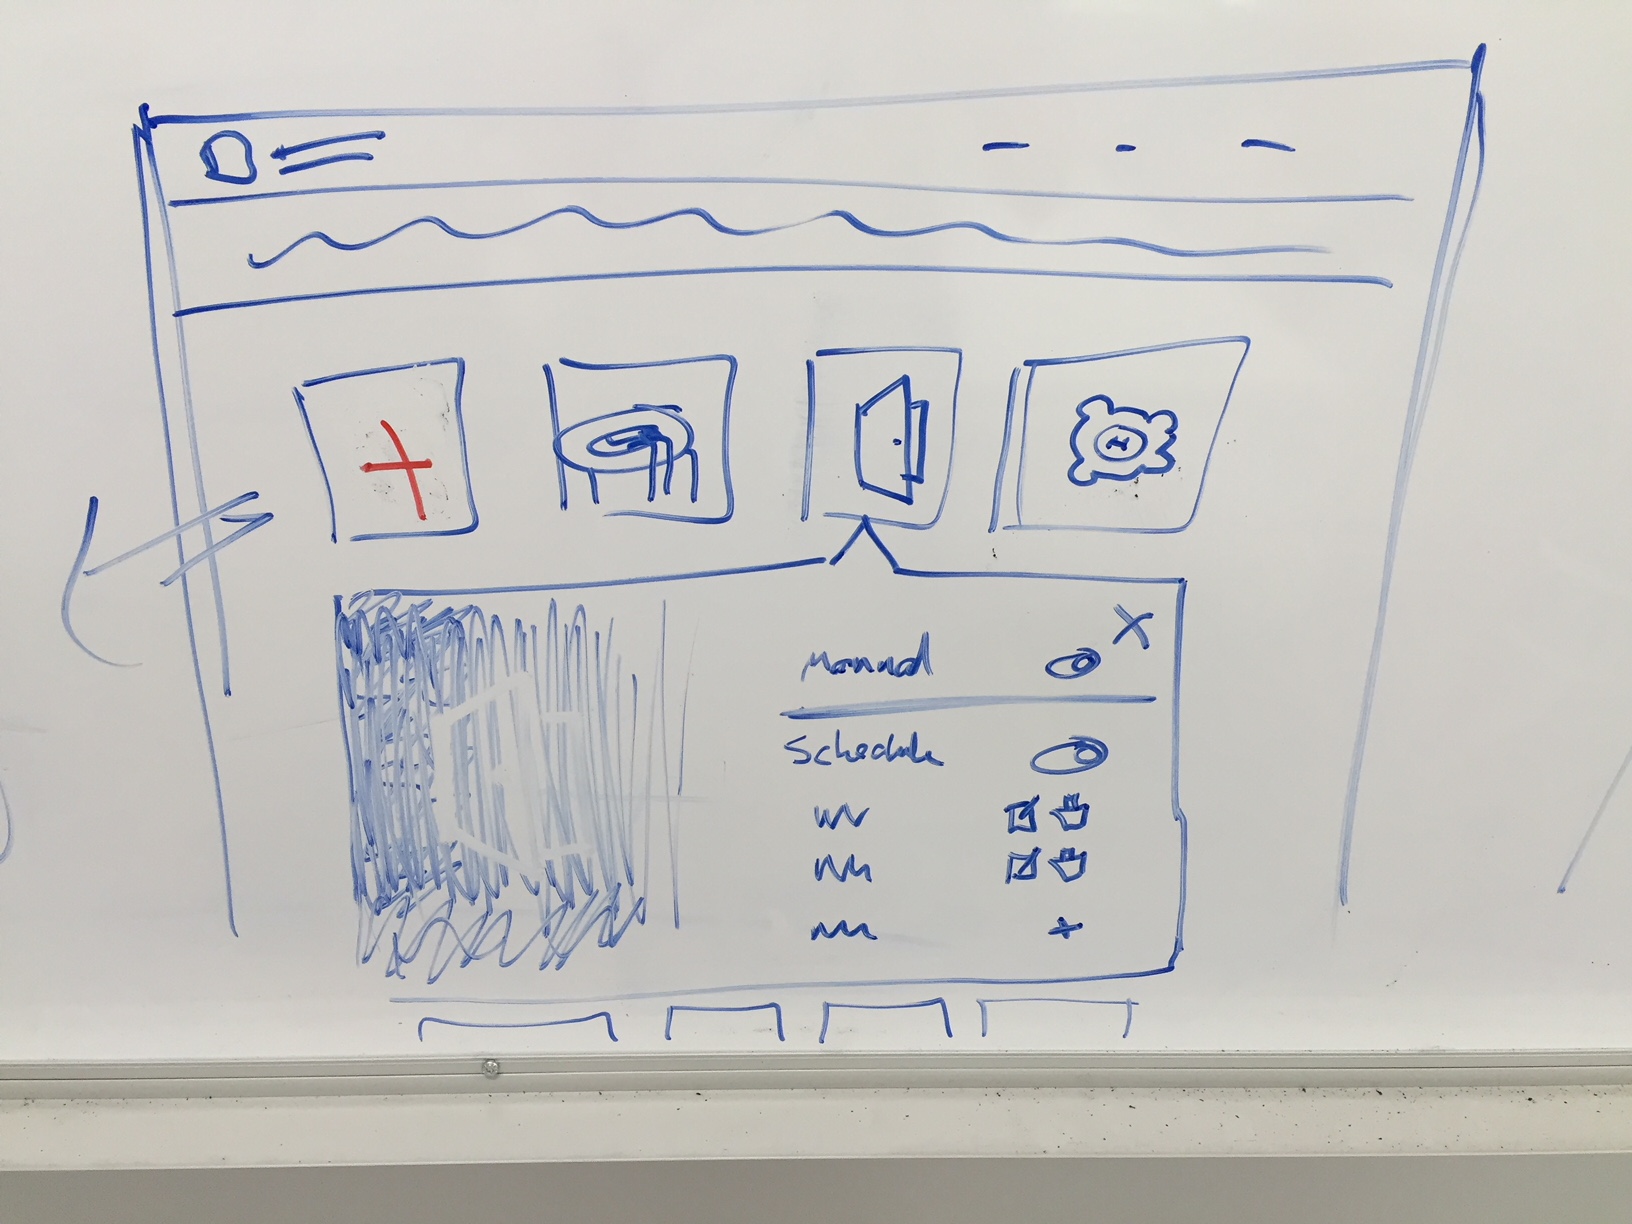 Manual
Schedule